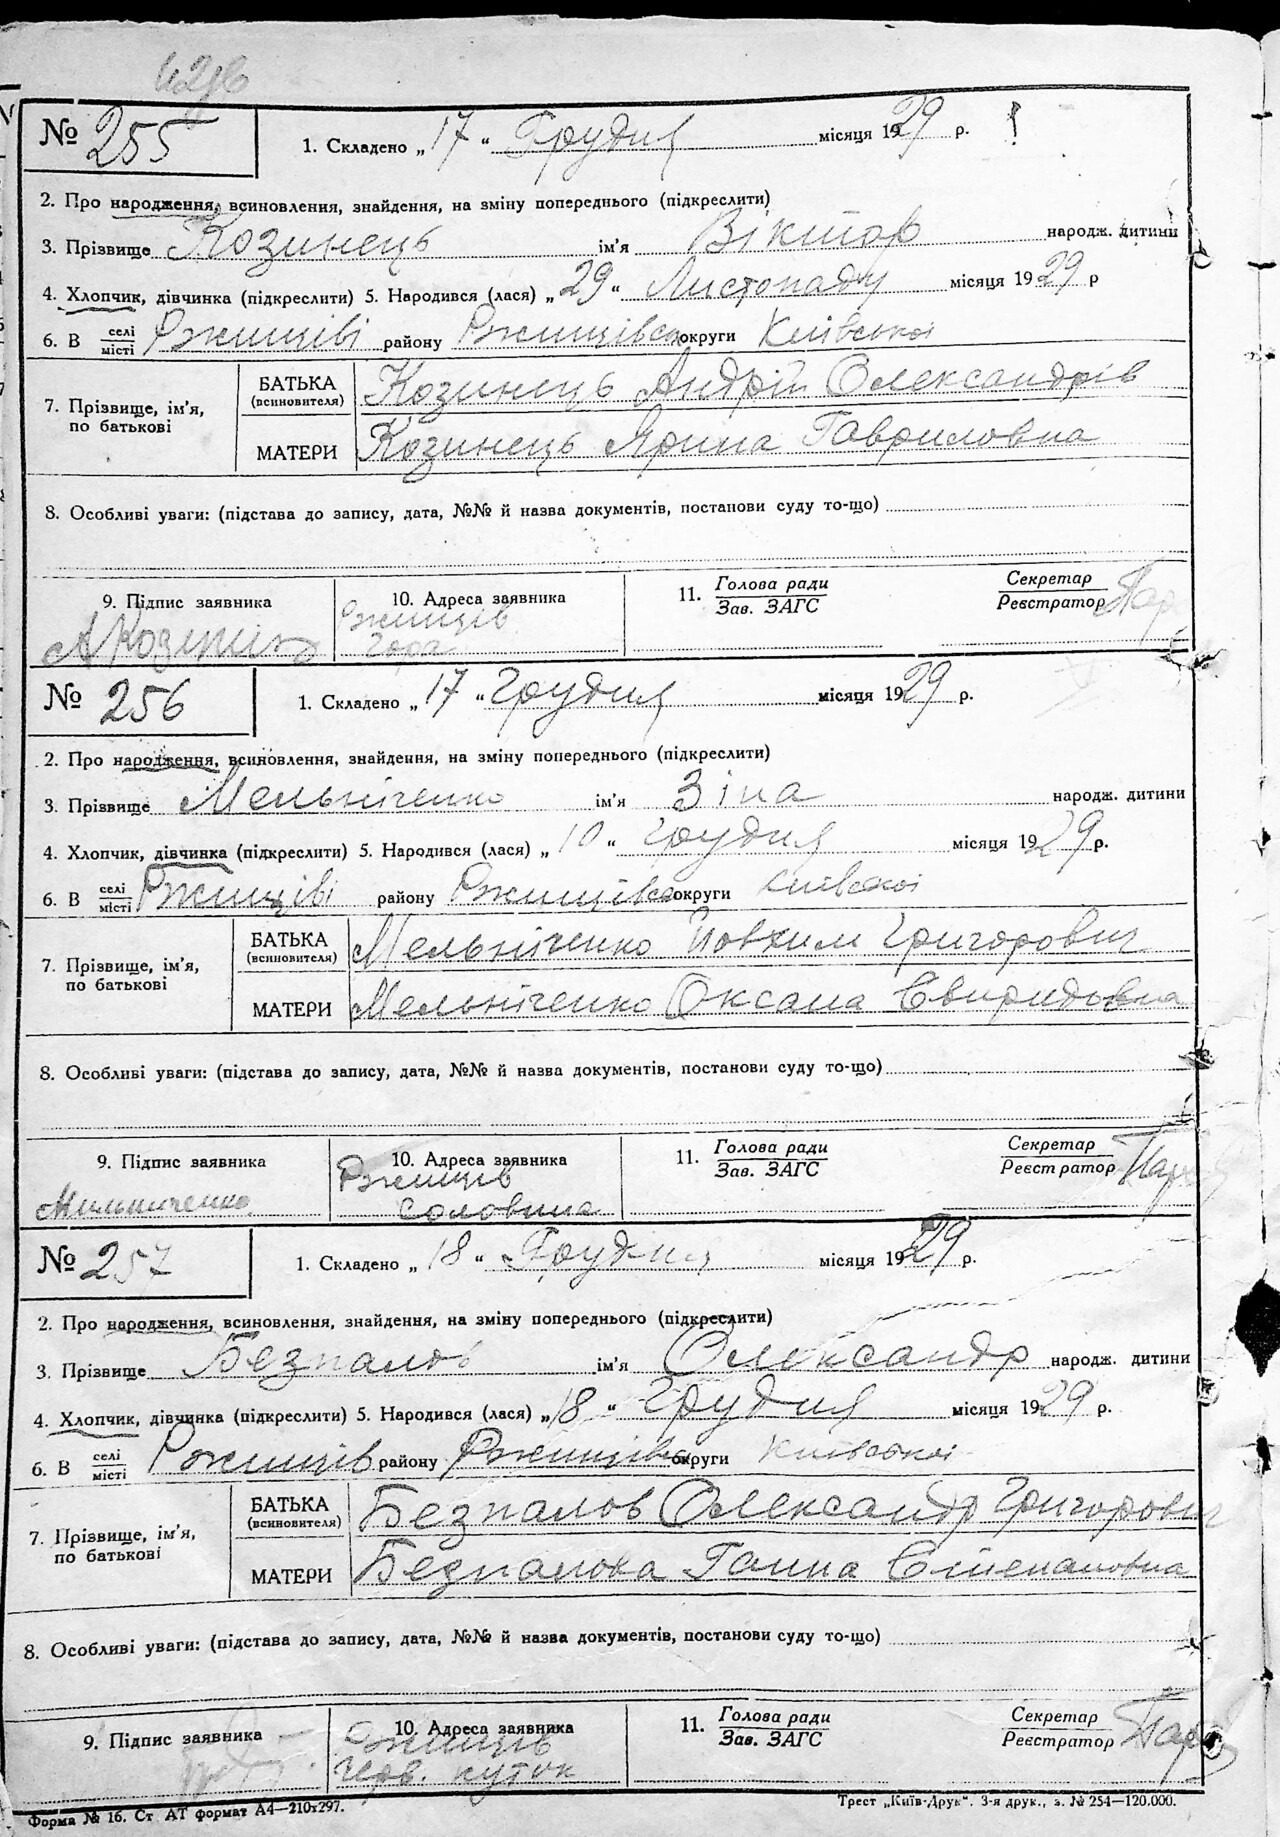 № 255
1. Складено „ 17 “ Грудня місяця 1929 р. !
2. Про народження, всиновлення, знайдення, на зміну попереднього (підкреслити)
3. Прізвище Козинець ім'я Віктор народж. дитини
4. Хлопчик, дівчинка (підкреслити) 5. Народився (лася) „ 29 “ Листопаду місяця 1929 р
6. В селі місті Ржищіві району Ржищівськ округи Київської
7. Прізвище, ім'я, по батькові
БАТЬКА (всиновителя) Козинець Андрій Олександрів
МАТЕРИ Козинець Ярина Гавриловна
8. Особливі уваги: (підстава до запису, дата, №№ й назва документів, постанови суду то-що)
9. Підпис заявника 10. Адреса заявника 11. Голова ради Зав. ЗАГС Секретар Реєстратор
А Козинець Ржищів
Гора
№ 256
1. Складено „ 17 “ Грудня місяця 1929 р.
2. Про народження, всиновлення, знайдення, на зміну попереднього (підкреслити)
3. Прізвище Мельніченко ім'я Зіна народж. дитини
4. Хлопчик, дівчинка (підкреслити) 5. Народився (лася) „ 10 “ Грудня місяця 1929 р.
6. В селі місті Ржищіві району Ржищівськ округи Київської
7. Прізвище, ім'я, по батькові
БАТЬКА (всиновителя) Мельніченко Йовхим Григорович
МАТЕРИ Мельніченко Оксана Свиридовна
8. Особливі уваги: (підстава до запису, дата, №№ й назва документів, постанови суду то-що)
9. Підпис заявника 10. Адреса заявника 11. Голова ради Зав. ЗАГС Секретар Реєстратор
Мильниченко Ржищів
Соловина
№ 257
1. Складено „ 18 “ Грудня місяця 1929 р.
2. Про народження, всиновлення, знайдення, на зміну попереднього (підкреслити)
3. Прізвище Безпалов ім'я Олександр народж. дитини
4. Хлопчик, дівчинка (підкреслити) 5. Народився (лася) „ 18 “ Грудня місяця 1929 р.
6. В селі місті Ржищів району Ржищівськ округи Київської
7. Прізвище, ім'я, по батькові
БАТЬКА (всиновителя) Безпалов Олександр Григорович
МАТЕРИ Безпалова Ганна Степановна
8. Особливі уваги: (підстава до запису, дата, №№ й назва документів, постанови суду то-що)
9. Підпис заявника 10. Адреса заявника 11. Голова ради Зав. ЗАГС Секретар Реєстратор
Ржищів
Черв. куток
Форма № 16. Ст АТ формат А4—210x297. Трест „Київ-Друк“. 3-я друк., з. № 254—120.000.